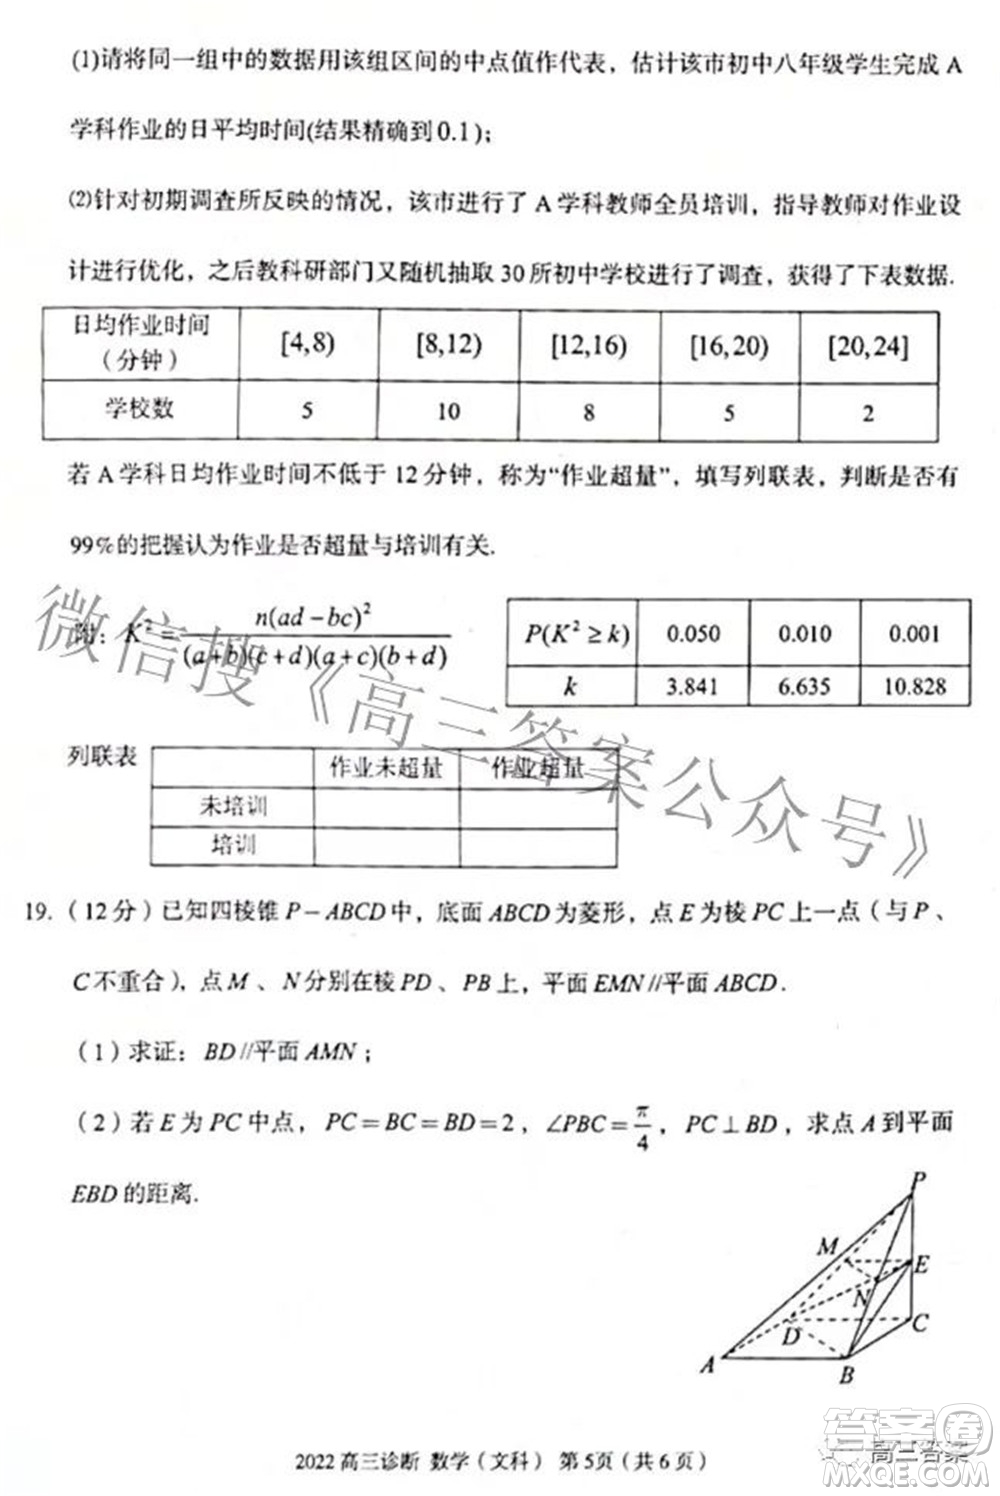 (1)请将同一组中的数据用该组区间的中点值作代表，估计该市初中八年级学生完成 A
学科作业的日平均时间(结果精确到0.1)；
(2)针对初期调查所反映的情况，该市进行了 A 学科教师全员培训，指导教师对作业设
计进行优化，之后教科研部门又随机抽取 30 所初中学校进行了调查，获得了下表数据.
日均作业时间（分钟） [4,8) [8,12) [12,16) [16,20) [20,24]
学校数 5 10 8 5 2
若 A 学科日均作业时间不低于 12 分钟，称为“作业超量”，填写列联表，判断是否有
99%的把握认为作业是否超量与培训有关.
附：K²=n(ad-bc)²/((a+b)(c+d)(a+c)(b+d))
P(K²≥k) 0.050 0.010 0.001
k 3.841 6.635 10.828
列联表
作业未超量 作业超量
未培训
培训
微信搜《高三答案公众号》
19.（12分）已知四棱锥 P-ABCD 中，底面 ABCD 为菱形，点 E 为棱 PC 上一点（与 P、
C 不重合），点 M 、N 分别在棱 PD、PB 上，平面 EMN//平面 ABCD.
（1）求证：BD//平面 AMN；
（2）若 E 为 PC 中点，PC=BC=BD=2，∠PBC=π/4，PC⊥BD，求点 A 到平面
EBD 的距离.
P
M
E
N
D
C
A
B
2022 高三诊断 数学（文科） 第 5页（共 6 页）
高三答案
答案卷
MXQE.COM